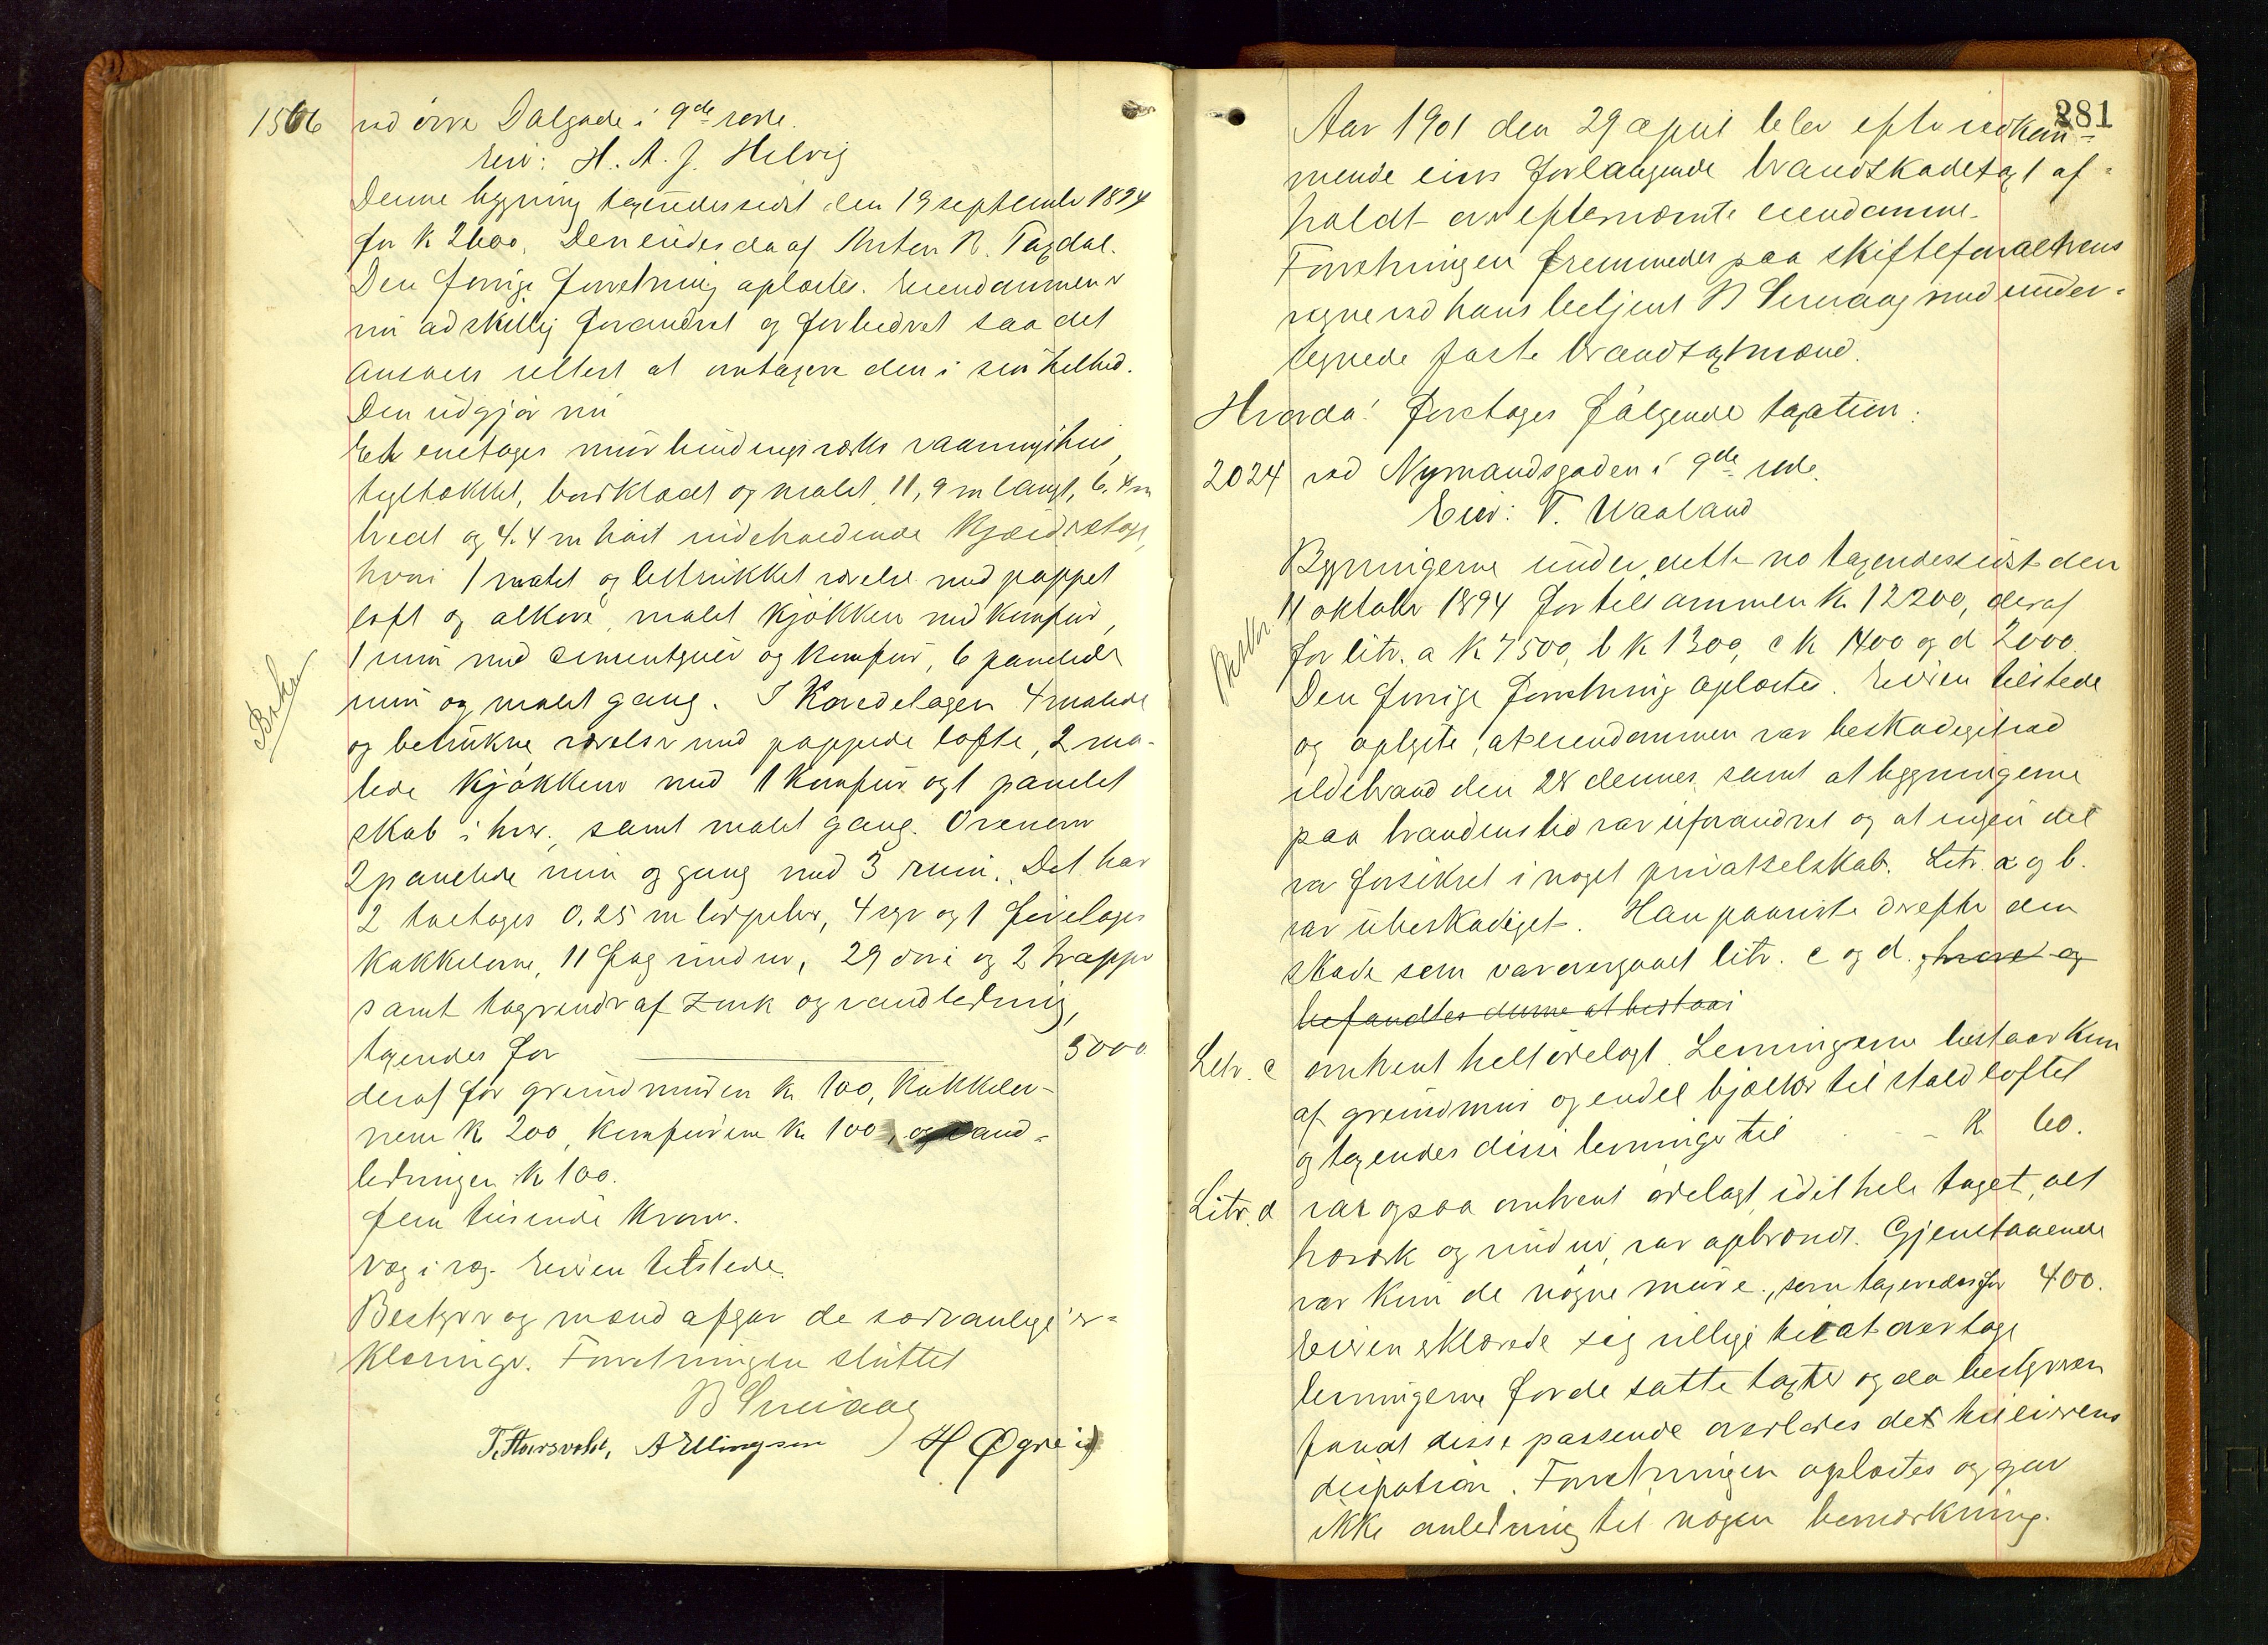 1566 ved øvre Dalgade i 9de rode.
Eier: H. A. J. Helvig
Denne bygning taxeredes sidst den 19 september 1894
for k 2600. Den eiedes da af Anton B. Taxdal.
Den forrige forretning oplæstes. Eiendommen er
nu adskillig forandret og forbedret saa det
ansaaes rettest at omtaxere den i sin helhed.
Den udgjør nu
Et enetages murbindingsverks vaaningshus,
tegltækket, bordklædt og malet, 11,9 m langt, 6.4 m
bredt og 4.4 m høit indeholdende Kjælderetage,
hvori 1 malet og betrukket værelse med pappet
loft og alkove, malet kjøkken med komfur,
1 rum med cementgulv og komfur, 6 panelede
rum og malet gang. I Hovedetagen 4 malede
og betrukne værelser med pappede lofter, 2 ma-
lede kjøkkener med 1 komfur og 1 panelet
skab i hver, samt malet gang. Ovenover
2 panelede rum og gang med 3 rum. Det har
2 toetages 0.25 m lørpiber, 4 og 1 fireetages
kakkelovne, 11 fag vinduer, 29 døre og 2 trapper
samt tagrender af zink og vandledning,
taxeredes for 5000
deraf for grundmuren k 100, Kakkelov-
nene k 200, komfurene k 100, og vand-
ledningen k 100.
fem tusende kroner.
Væg i væg. Eieren tilstede.
Bestyrer og mænd afgav de sædvanlige er-
klæringer. Forretningen sluttet
B Smaaag
T. Haarsvoldt, A Ellingsen H Øgreid
281
Aar 1901 den 29 april blev efter vedkom-
mende eiers forlangende brandskadetaxt af-
holdt over eftenævnte eiendomme.
Forretningen fremmedes paa skifteforvalterens
vegne ved hans betjent B Smaaag med under-
tegnede faste brandtaxtmænd.
Hvorda! foretages følgende taxation:
2024 ved Nymandsgaden i 9de rode.
Eier: T. Waaland
Bygningerne under dette no taxeredes sidst den
11 oktober 1894 for tilsammen k. 12200, deraf
for litr. a k 7500, b k 1300, c k 1400 og d 2000.
Den forrige forretning oplæstes. Eieren tilstede
og oplyste, at eiendommen var beskadiget ved
ildebrand den 28 dennes, samt at bygningerne
paa brandens tid var uforandret og at ingen del
var forsikret i noget privat selskab. Litr. a og b.
var ubeskadiget. Han paaviste derefter den
skade som var overgaaet litr. c og d. hvoref og
befandtes denne at bestaa i
Litr. c omtrent helt ødelagt. Levningerne bestaar kun
af grundmur og endel bjælker til staldloftet
og taxeredes disse levninger til k 60.
Litr. d var ogsaa omtrent ødelagt, idet hele taget, alt
træværk og vinduer var opbrændt. Gjenstaaende
var kun de nøgne mure, som taxeredes for 400.
Eieren erklærede sig villig til at overtage
levningerne for de satte taxter og da bestyreren
fandt disse passende overlodes det til eierens
disposition. Forretningen oplæstes og gav
ikke anledning til nogen bemærkning.